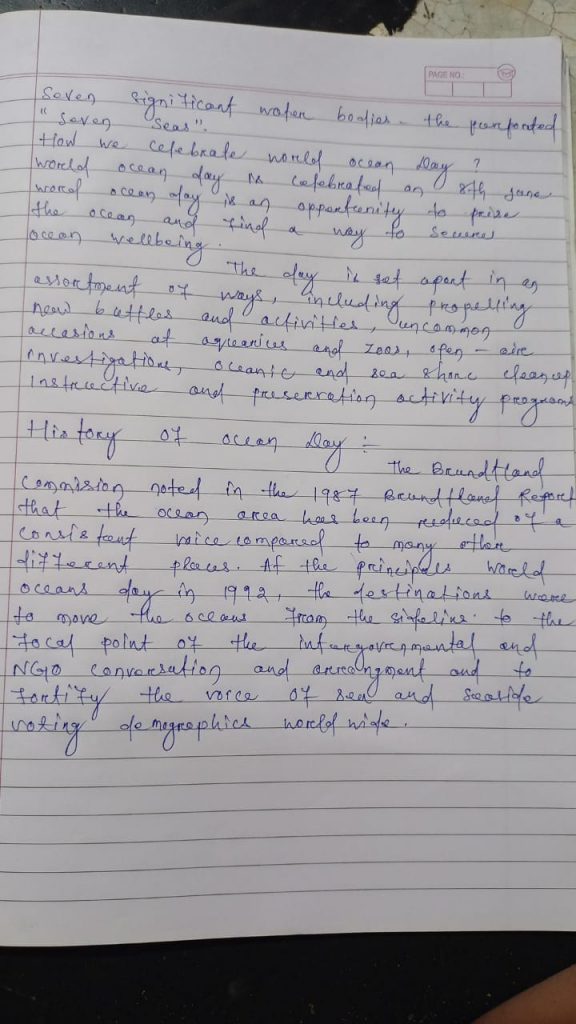 PAGE NO.:
Seven significant water bodies - the purported
"Seven Seas".
How we celebrate world ocean Day ?
World ocean day is celebrated on 8th June
world ocean day is an opportunity to prize
the ocean and find a way to secure
ocean wellbeing.
The day is set apart in an
assortment of ways, including propelling
new battles and activities, uncommon
occasions at aquarius and zoos, open - air
investigations, oceanic and sea shore cleanup
instructive and preserration activity programs
History of ocean Day :-
The Brundtland
Commision noted in the 1987 Brundtland Report
that the ocean area has been reduced of a
consistent voice compared to many other
different places. At the principals World
oceans day in 1992, the destinations were
to move the oceans from the sideline to the
focal point of the intergovernmental and
NGO conversation and arrangment and to
fortify the voice of sea and seaside
voting demographics world wide.